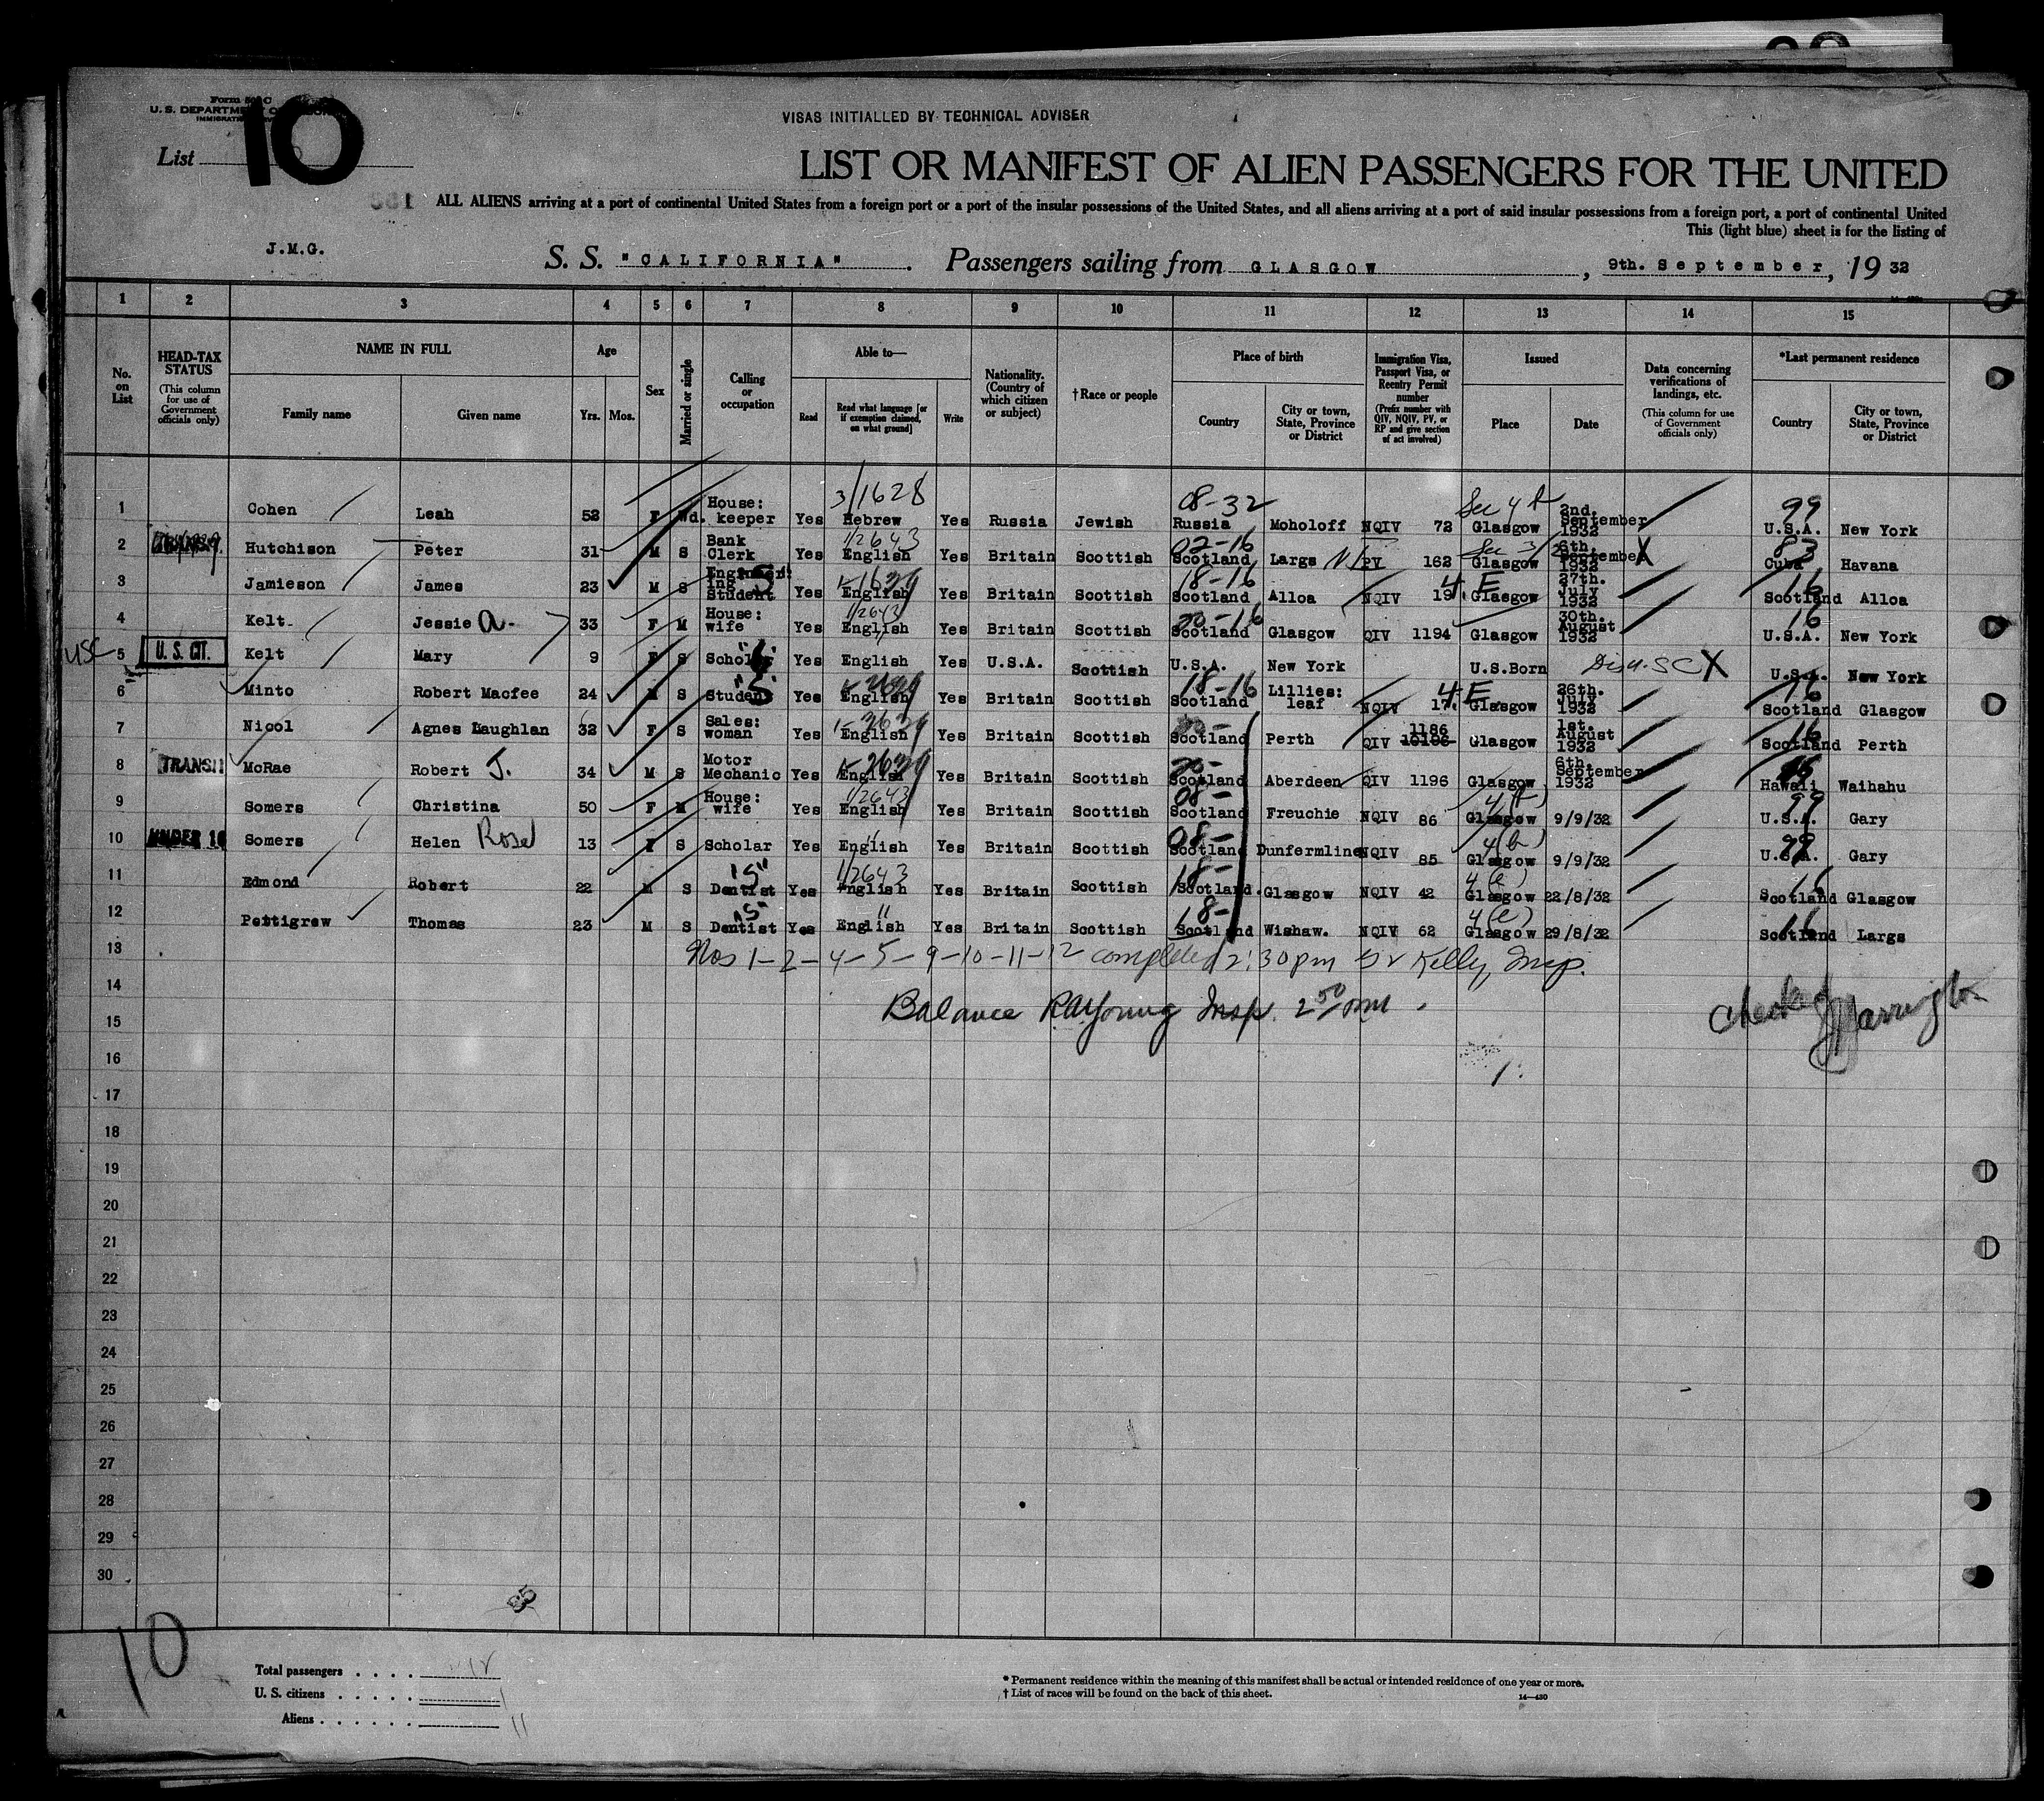 Form 500 C
U. S. DEPARTMENT OF LABOR
IMMIGRATION SERVICE
10
List
VISAS INITIALLED BY TECHNICAL ADVISER
LIST OR MANIFEST OF ALIEN PASSENGERS FOR THE UNITED
ALL ALIENS arriving at a port of continental United States from a foreign port or a port of the insular possessions of the United States, and all aliens arriving at a port of said insular possessions from a foreign port, a port of continental United
This (light blue) sheet is for the listing of
J.M.G.
S. S. "CALIFORNIA" Passengers sailing from GLASGOW, 9th. September, 19 32
1 2 3 4 5 6 7 8 9 10 11 12 13 14 15
No. on List
HEAD-TAX STATUS (This column for use of Government officials only)
NAME IN FULL Family name Given name
Age Yrs. Mos.
Sex
Married or single
Calling or occupation
Able to— Read Read what language [or if exemption claimed, on what ground] Write
Nationality. (Country of which citizen or subject)
†Race or people
Place of birth Country City or town, State, Province or District
Immigration Visa, Passport Visa, or Reentry Permit number (Prefix number with QIV, NQIV, PV, or RP and give section of act involved)
Issued Place Date
Data concerning verifications of landings, etc. (This column for use of Government officials only)
*Last permanent residence Country City or town, State, Province or District
1 Cohen Leah 52 F Wd. House: keeper Yes 3/1628 Hebrew Yes Russia Jewish 08-32 Russia Moholoff NQIV 72 Sec 4 b Glasgow 2nd. September 1932 99 U.S.A. New York
2 Hutchison Peter 31 M S Bank Clerk Yes 1/2643 English Yes Britain Scottish 02-16 Scotland Largs PV 162 Sec 3/2 Glasgow 6th. September 1932 X 83 Cuba Havana
3 Jamieson James 23 M S Engineer: ing Student "S" Yes English Yes Britain Scottish 18-16 Scotland Alloa NQIV 19 4 E Glasgow 27th. July 1932 16 Scotland Alloa
4 Kelt Jessie A. 33 F M House: wife Yes 1/2643 English Yes Britain Scottish 20-16 Scotland Glasgow QIV 1194 Glasgow 30th. August 1932 16 U.S.A. New York
USC 5 U.S. CIT. Kelt Mary 9 F S Scholar Yes English Yes U.S.A. Scottish U.S.A. New York U.S.Born X U.S.A. New York
6 Minto Robert Macfee 24 M S Student "S" Yes English Yes Britain Scottish 18-16 Scotland Lillies: leaf NQIV 17 4 E Glasgow 26th. July 1932 16 Scotland Glasgow
7 Nicol Agnes Laughlan 32 F S Sales: woman Yes English Yes Britain Scottish 20- Scotland Perth QIV 1186 10196 Glasgow 1st. August 1932 16 Scotland Perth
8 TRANSIT McRae Robert J. 34 M S Motor Mechanic Yes English Yes Britain Scottish 20- Scotland Aberdeen QIV 1196 Glasgow 6th. September 1932 Hawaii Waihahu
9 Somers Christina 50 F M House: wife Yes 1/2643 English Yes Britain Scottish 08- Scotland Freuchie NQIV 86 4(b) Glasgow 9/9/32 99 U.S.A. Gary
10 UNDER 16 Somers Helen Rose 13 F S Scholar Yes " English Yes Britain Scottish 08- Scotland Dunfermline NQIV 85 4(b) Glasgow 9/9/32 99 U.S.A. Gary
11 Edmond Robert 22 M S "S" Dentist Yes 1/2643 English Yes Britain Scottish 18- Scotland. Glasgow NQIV 42 4(e) Glasgow 22/8/32 16 Scotland Glasgow
12 Pettigrew Thomas 23 M S "S" Dentist Yes " English Yes Britain Scottish 18- Scotland Wishaw. NQIV 62 4(e) Glasgow 29/8/32 16 Scotland Largs
13 Nos 1-2-4-5-9-10-11-12 completed 2:30pm Kelly, Insp.
14 Balance R A Young Insp. 2 50 pm
Checked Harrington
15
16
17
18
19
20
21
22
23
24
25
26
27
28
29
30
10
Total passengers . . . . 12
U. S. citizens . . . . . 1
Aliens . . . . . . 11
* Permanent residence within the meaning of this manifest shall be actual or intended residence of one year or more.
† List of races will be found on the back of this sheet.
14—430